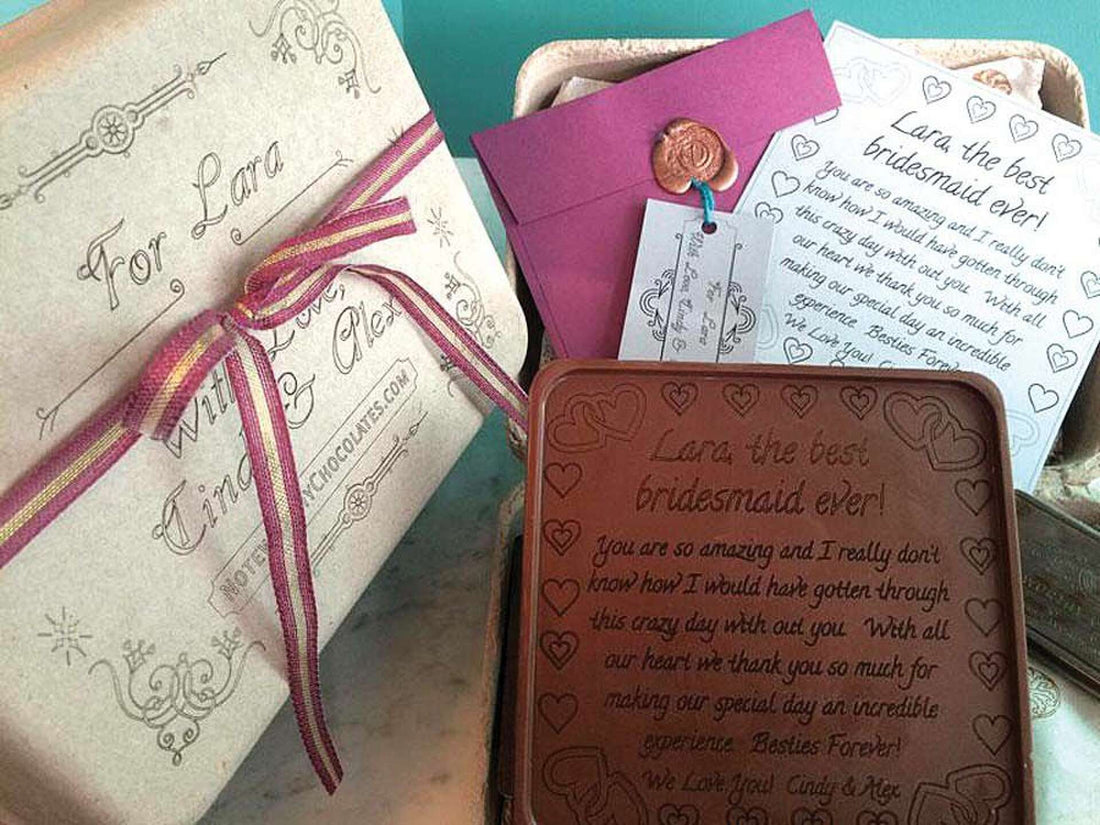 For Lara
With Love,
&
Alex
CHOCOLATES.COM
For Lara
With Love Cindy &
Lara, the best
bridesmaid ever!
You are so amazing and I really don't
know how I would have gotten through
this crazy day with out you. With all
our heart we thank you so much for
making our special day an incredible
experience. Besties Forever!
We Love You!
Lara, the best
bridesmaid ever!
You are so amazing and I really don't
know how I would have gotten through
this crazy day with out you. With all
our heart we thank you so much for
making our special day an incredible
experience. Besties Forever!
We Love You! Cindy & Alex